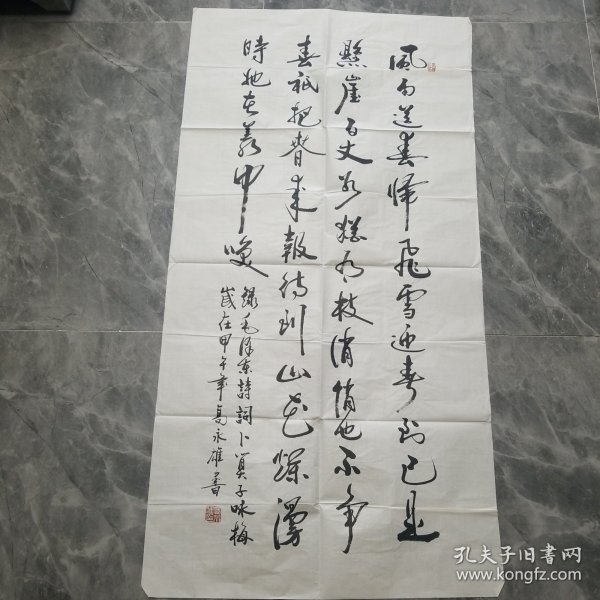 風雨送春归飛雪迎春到已是
懸崖百丈冰猶有枝俏俏也不争
春祇把春来報待到山花爛漫
時她在叢中唉
錄毛泽东詩詞卜算子咏梅
歲在甲午年高永雄書
孔夫子旧書网
www.kongfz.com